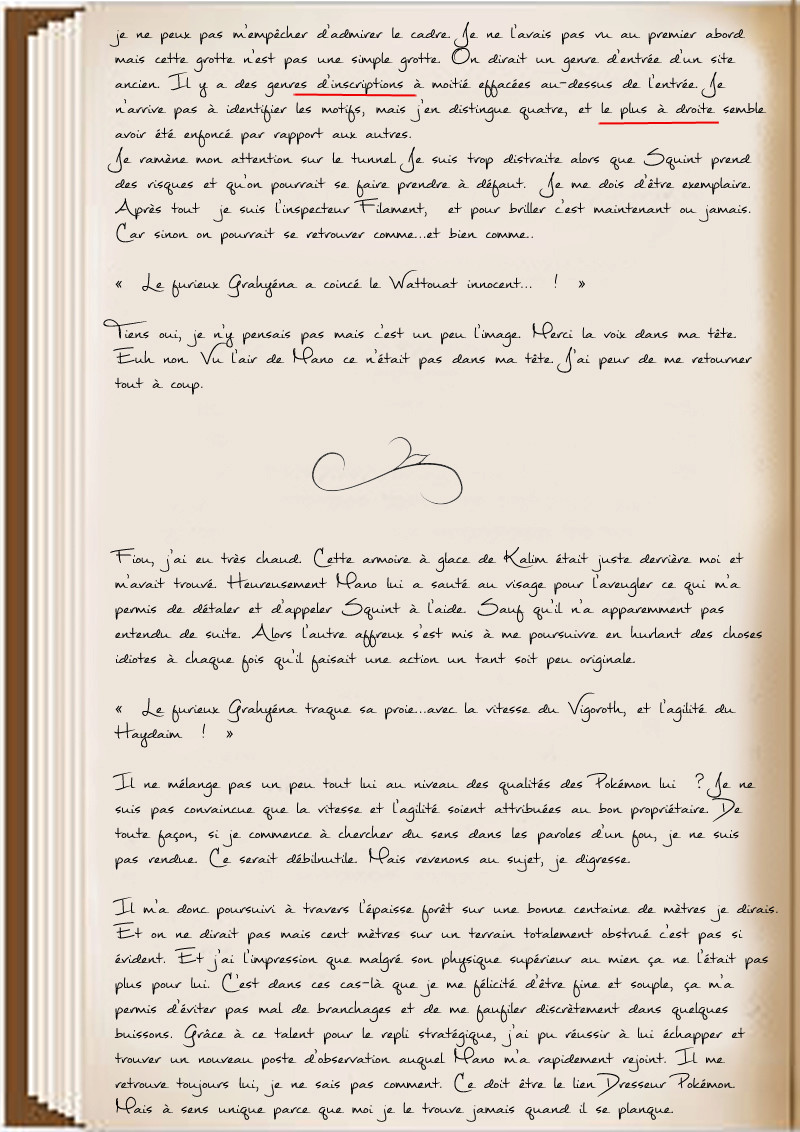 je ne peux pas m'empêcher d'admirer le cadre. Je ne l'avais pas vu au premier abord
mais cette grotte n'est pas une simple grotte. On dirait un genre d'entrée d'un site
ancien. Il y a des genres d'inscriptions à moitié effacées au-dessus de l'entrée. Je
n'arrive pas à identifier les motifs, mais j'en distingue quatre, et le plus à droite semble
avoir été enfoncé par rapport aux autres.
Je ramène mon attention sur le tunnel. Je suis trop distraite alors que Squint prend
des risques et qu'on pourrait se faire prendre à défaut. Je me dois d'être exemplaire.
Après tout je suis l'inspecteur Filament, et pour briller c'est maintenant ou jamais.
Car sinon on pourrait se retrouver comme...et bien comme..
« Le furieux Grahyéna a coincé le Wattouat innocent... ! »
Tiens oui, je n'y pensais pas mais c'est un peu l'image. Merci la voix dans ma tête.
Euh non. Vu l'air de Mano ce n'était pas dans ma tête. J'ai peur de me retourner
tout à coup.
Fiou, j'ai eu très chaud. Cette armoire à glace de Kalim était juste derrière moi et
m'avait trouvé. Heureusement Mano lui a sauté au visage pour l'aveugler ce qui m'a
permis de détaler et d'appeler Squint à l'aide. Sauf qu'il n'a apparemment pas
entendu de suite. Alors l'autre affreux s'est mis à me poursuivre en hurlant des choses
idiotes à chaque fois qu'il faisait une action un tant soit peu originale.
« Le furieux Grahyéna traque sa proie...avec la vitesse du Vigoroth, et l'agilité du
Haydaim ! »
Il ne mélange pas un peu tout lui au niveau des qualités des Pokémon lui ? Je ne
suis pas convaincue que la vitesse et l'agilité soient attribuées au bon propriétaire. De
toute façon, si je commence à chercher du sens dans les paroles d'un fou, je ne suis
pas rendue. Ce serait débilnutile. Mais revenons au sujet, je digresse.
Il m'a donc poursuivi à travers l'épaisse forêt sur une bonne centaine de mètres je dirais.
Et on ne dirait pas mais cent mètres sur un terrain totalement obstrué c'est pas si
évident. Et j'ai l'impression que malgré son physique supérieur au mien ça ne l'était pas
plus pour lui. C'est dans ces cas-là que je me félicité d'être fine et souple, ça m'a
permis d'éviter pas mal de branchages et de me faufiler discrètement dans quelques
buissons. Grâce à ce talent pour le repli stratégique, j'ai pu réussir à lui échapper et
trouver un nouveau poste d'observation auquel Mano m'a rapidement rejoint. Il me
retrouve toujours lui, je ne sais pas comment. Ce doit être le lien Dresseur Pokémon.
Mais à sens unique parce que moi je le trouve jamais quand il se planque.